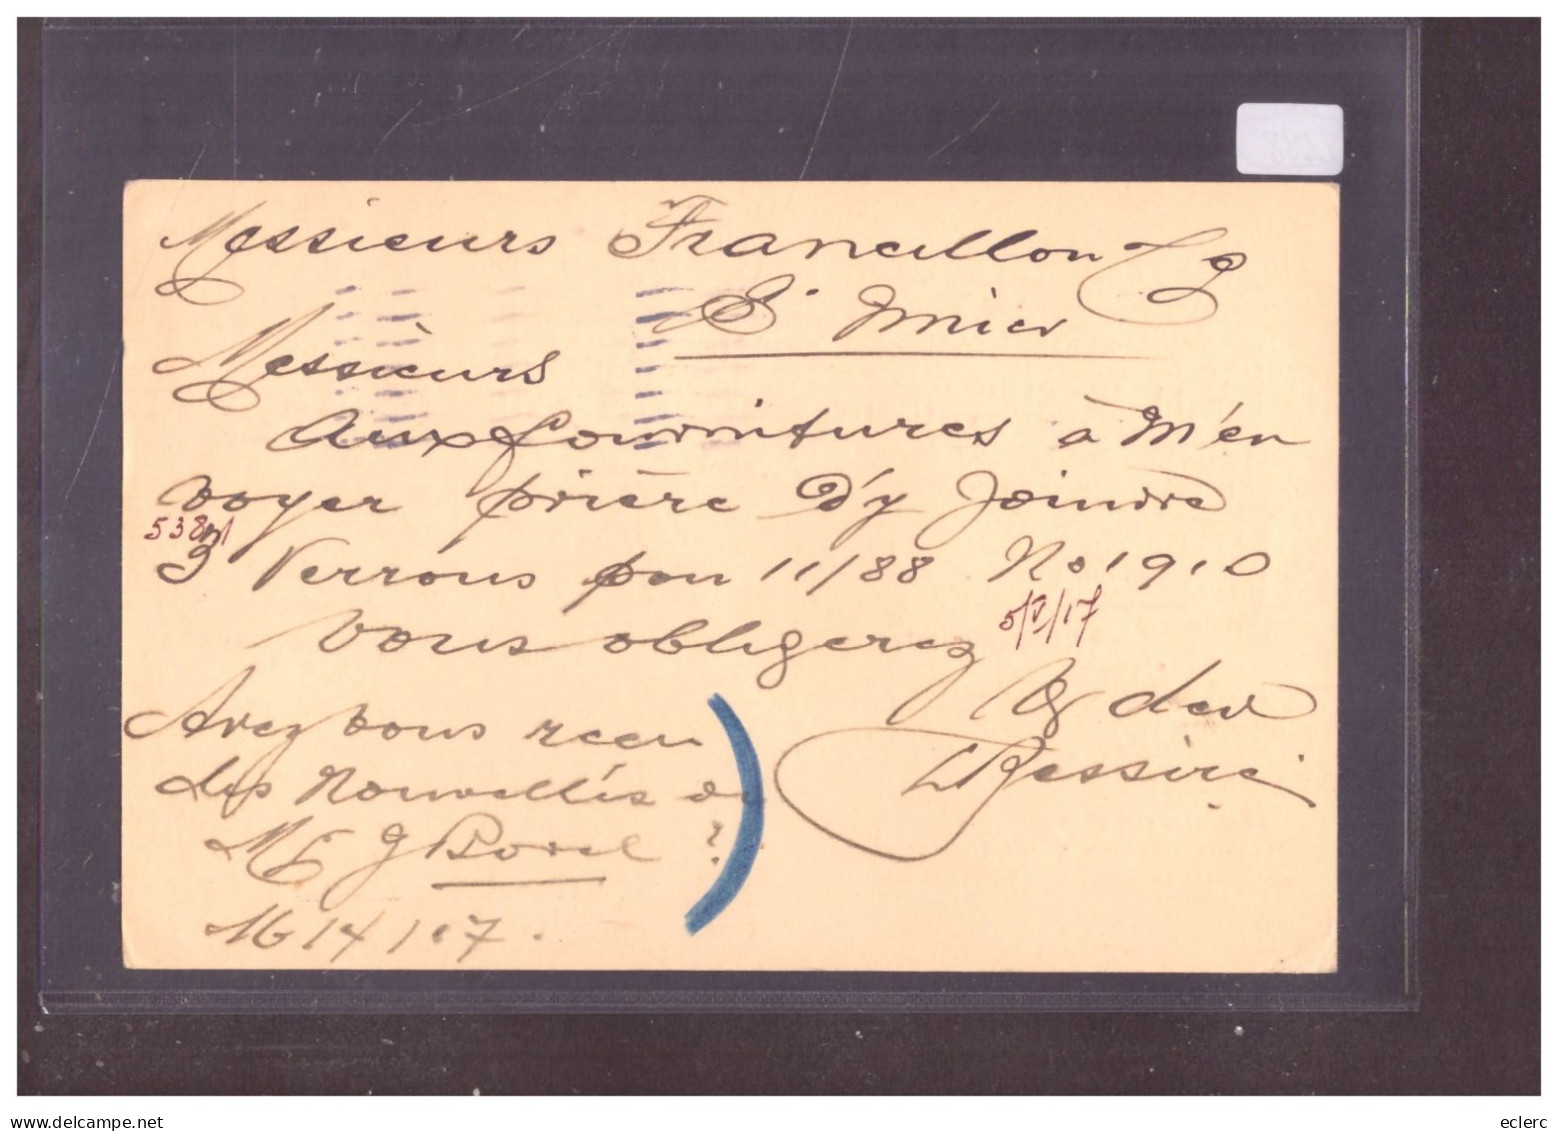 Messieurs Francillon Cie
St Imier
Messièurs
Aux fournitures à M'en
voyer prière D'y Joindre
538
3 Verrous pou 11/88 No 1910
5/V/17
vous obligerez
Avez vous reçu
des Nouvellés de
Mr J Borel ?
16/4/17.
www.delcampe.net
eclerc